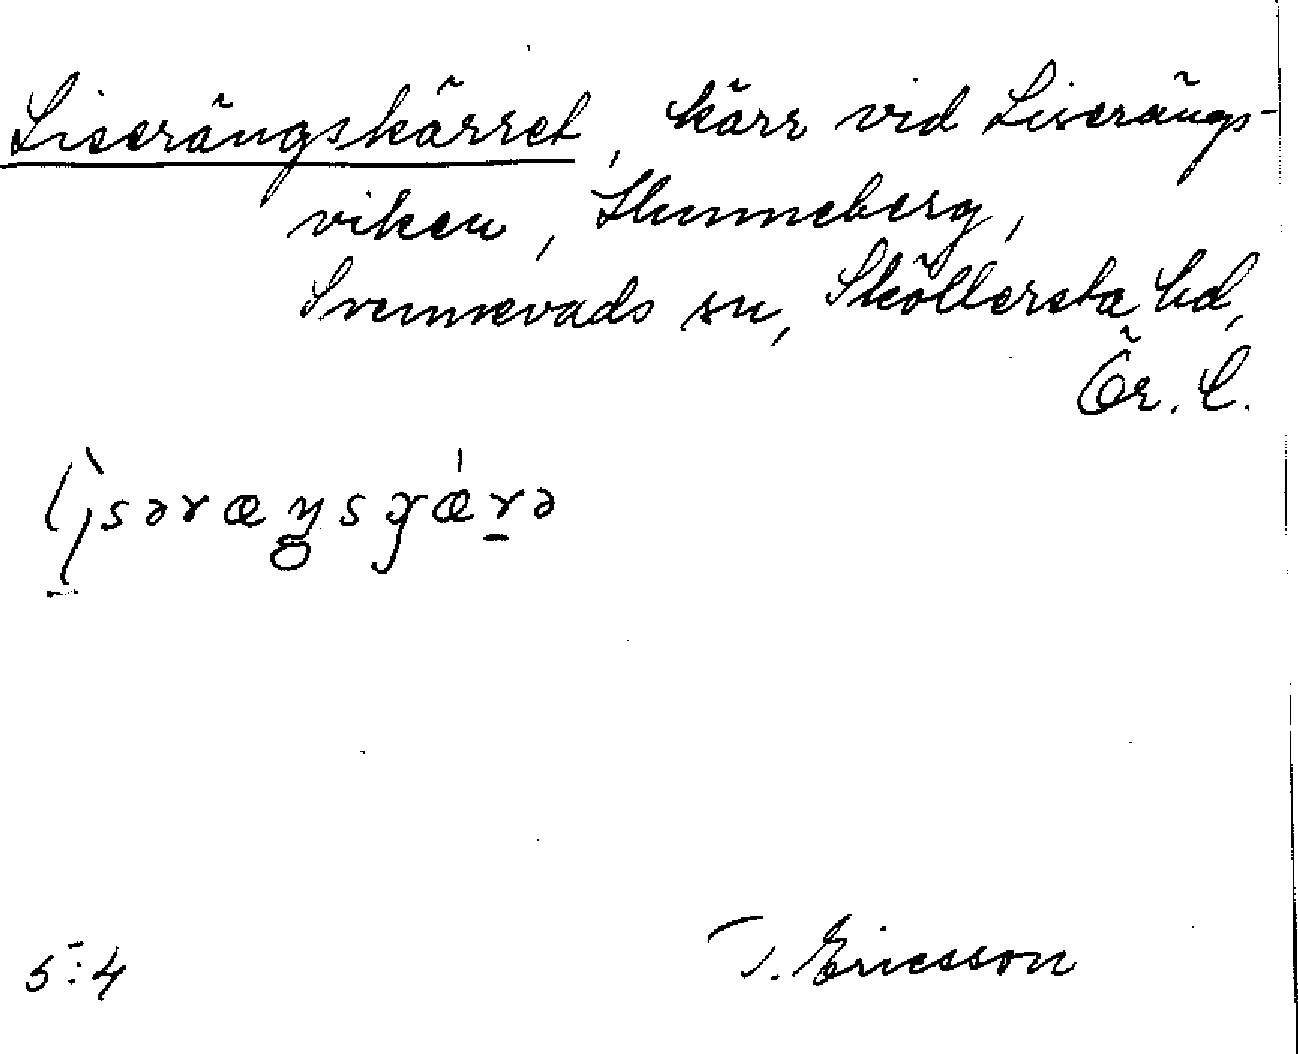 Liserängskärret, kärr vid Liserängs-
viken, Slunneberg,
Svennevads sn, Sköllersta hd,
Ör. l.
5:4
T. Ericsson